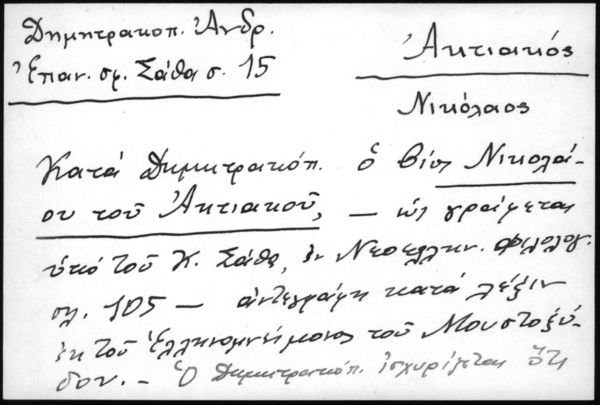 Δημητρακοπ. Ἀνδρ.
Ἐπαν. σφ. Σάθα σ. 15
Ἀκτιακός
Νικόλαος
Κατά Δημητρακόπ. ὁ βίος Νικολά-
ου τοῦ Ἀκτιακοῦ, — ὡς γράφεται
ὑπό τοῦ Κ. Σάθα, ἐν Νεοελλην. Φιλολογ.
σελ. 105 — ἀντεγράφη κατά λέξιν
ἐκ τοῦ Ἑλληνομνήμονος τοῦ Μουστοξύ-
δου. — Ὁ Δημητρακόπ. ἰσχυρίζεται ὅτι